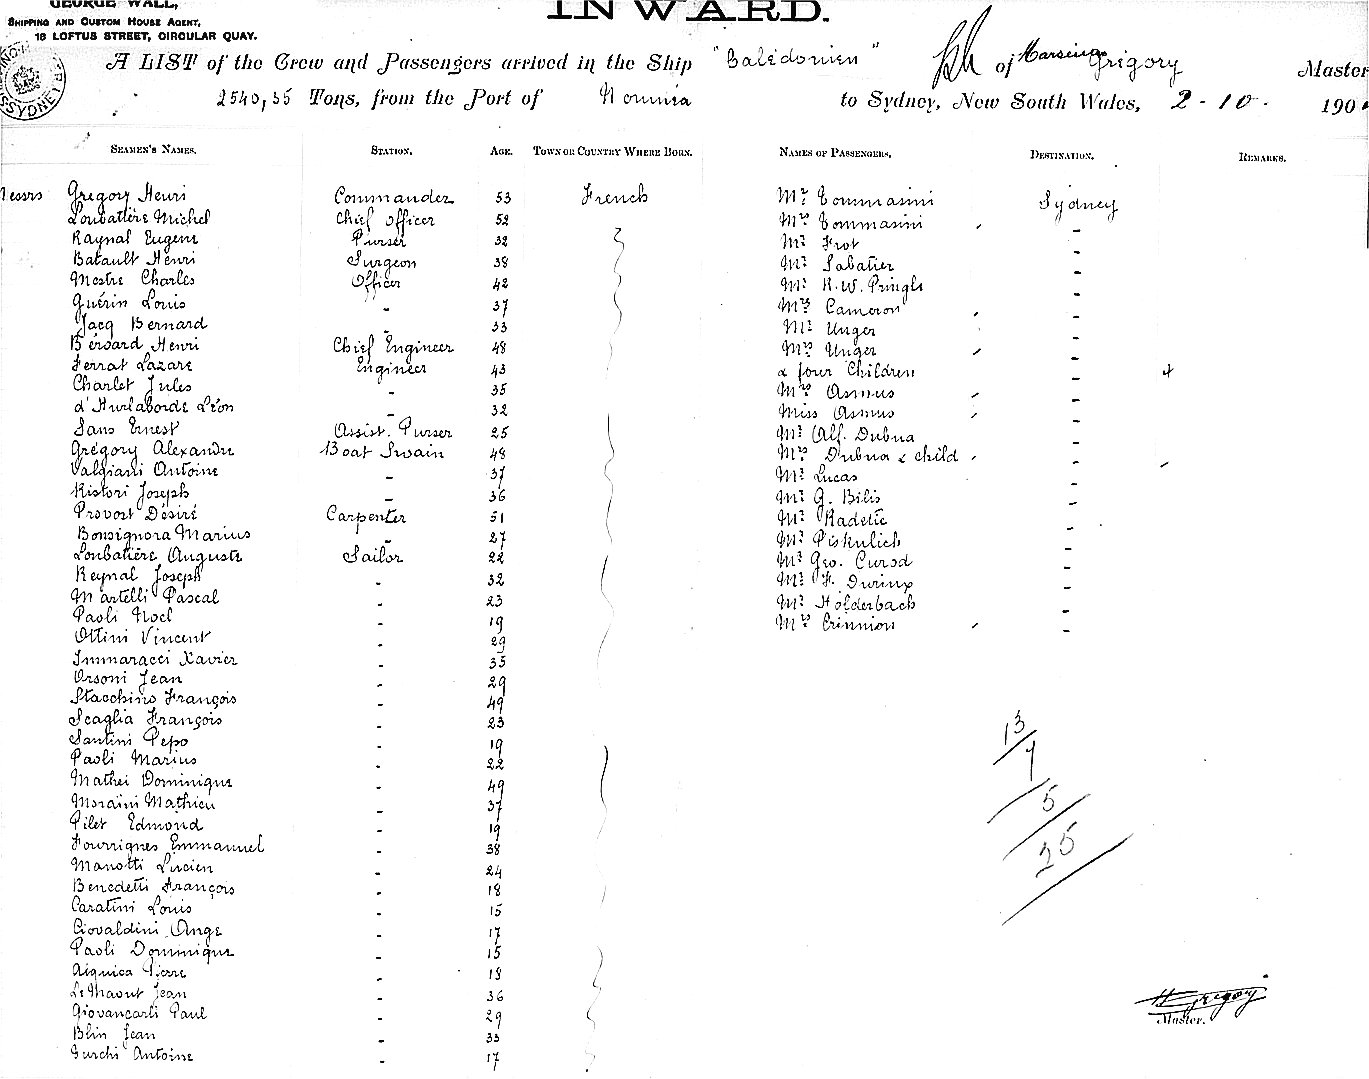 GEORGE WALL,
SHIPPING AND CUSTOM HOUSE AGENT,
18 LOFTUS STREET, CIRCULAR QUAY.
INWARD.
A LIST of the Crew and Passengers arrived in the Ship "Calédonien" of Grégory Master
2540,35 Tons, from the Port of Nouméa to Sydney, New South Wales, 2 - 10 - 190
SEAMEN'S NAMES. STATION. AGE. TOWN OR COUNTRY WHERE BORN. NAMES OF PASSENGERS. DESTINATION. REMARKS.
Messrs Grégory Henri Commander 53 French Mr Tommasini Sydney
Loubatière Michel Chief Officer 52 Mrs Tommasini -
Raynal Eugene Purser 32 Mr Frot -
Batault Henri Surgeon 38 Mr Sabatier -
Mestre Charles Officer 42 Mr R. W. Pringle -
Guérin Louis - 37 Mrs Cameron -
Jacq Bernard - 33 Mr Unger -
Bérard Henri Chief Engineer 48 Mrs Unger -
Ferrat Lazare Engineer 43 & four Children - 4
Charlet Jules - 35 Mrs Asmus -
d'Hurlaborde Léon - 32 Miss Asmus -
Sans Ernest Assist. Purser 25 Mr Alf. Dubua -
Grégory Alexandre Boat Swain 48 Mrs Dubua & child -
Valgiani Antoine - 37 Mr Lucas -
Ristori Joseph - 36 Mr G. Bilis -
Provost Désiré Carpenter 51 Mr Radetic -
Bonsignora Marius - 27 Mr Piskulich -
Loubatière Auguste Sailor 22 Mr Geo. Cursod -
Reynal Joseph - 32 Mr F. Duriux -
Martelli Pascal - 23 Mr Holderbach -
Paoli Noel - 19 Mrs Crinnion -
Ottini Vincent - 29
Immaracci Xavier - 35
Orsoni Jean - 29
Stacchino François - 49
Scaglia François - 23
Santini Pepo - 19
Paoli Marius - 22
Mathei Dominique - 49
Moraini Mathieu - 37
Pilet Edmond - 19
Fourrignes Emmanuel - 38
Manotti Lucien - 24
Benedetti François - 18
Caratini Louis - 15
Giovaldini Ange - 17
Paoli Dominique - 15
Aiquica Pierre - 18
Le Maout Jean - 36
Giovancarli Paul - 29
Blin Jean - 35
Antoine - 17
13
7
5
25
H Gregory
Master.